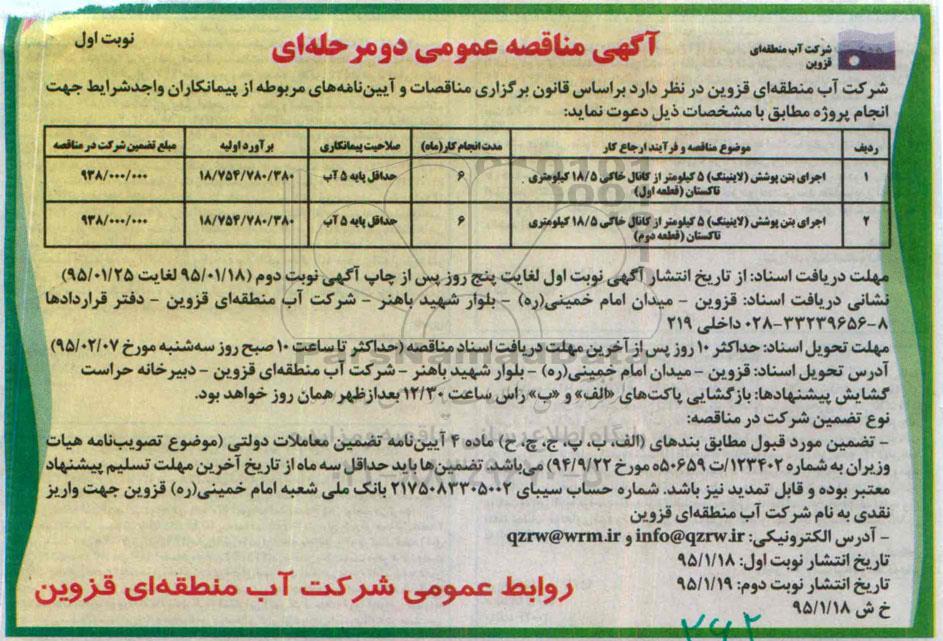 شرکت آب منطقه‌ای
قزوین
آگهی مناقصه عمومی دومرحله‌ای
نوبت اول
شرکت آب منطقه‌ای قزوین در نظر دارد براساس قانون برگزاری مناقصات و آیین‌نامه‌های مربوطه از پیمانکاران واجدشرایط جهت
انجام پروژه مطابق با مشخصات ذیل دعوت نماید:
ردیف موضوع مناقصه و فرآیند ارجاع کار مدت انجام کار (ماه) صلاحیت پیمانکاری برآورد اولیه مبلغ تضمین شرکت در مناقصه
۱ اجرای بتن پوشش (لاینینگ) ۵ کیلومتر از کانال خاکی ۱۸/۵ کیلومتری ۶ حداقل پایه ۵ آب ۱۸/۷۵۴/۷۸۰/۳۸۰ ۹۳۸/۰۰۰/۰۰۰
تاکستان (قطعه اول)
۲ اجرای بتن پوشش (لاینینگ) ۵ کیلومتر از کانال خاکی ۱۸/۵ کیلومتری ۶ حداقل پایه ۵ آب ۱۸/۷۵۴/۷۸۰/۳۸۰ ۹۳۸/۰۰۰/۰۰۰
تاکستان (قطعه دوم)
مهلت دریافت اسناد: از تاریخ انتشار آگهی نوبت اول لغایت پنج روز پس از چاپ آگهی نوبت دوم (۹۵/۰۱/۱۸ لغایت ۹۵/۰۱/۲۵)
نشانی دریافت اسناد: قزوین - میدان امام خمینی(ره) - بلوار شهید باهنر - شرکت آب منطقه‌ای قزوین - دفتر قراردادها
۸-۳۳۲۳۹۶۵۶-۰۲۸ داخلی ۲۱۹
مهلت تحویل اسناد: حداکثر ۱۰ روز پس از آخرین مهلت دریافت اسناد مناقصه (حداکثر تا ساعت ۱۰ صبح روز سه‌شنبه مورخ ۹۵/۰۲/۰۷)
آدرس تحویل اسناد: قزوین - میدان امام خمینی(ره) - بلوار شهید باهنر - شرکت آب منطقه‌ای قزوین - دبیرخانه حراست
گشایش پیشنهادها: بازگشایی پاکت‌های «الف» و «ب» راس ساعت ۱۲/۳۰ بعدازظهر همان روز خواهد بود.
نوع تضمین شرکت در مناقصه:
- تضمین مورد قبول مطابق بندهای (الف، ب، پ، ج، چ، ح) ماده ۴ آیین‌نامه تضمین معاملات دولتی (موضوع تصویب‌نامه هیات
وزیران به شماره ۱۲۳۴۰۲/ت۵۰۶۵۹ه مورخ ۹۴/۹/۲۲) می‌باشد. تضمین‌ها باید حداقل سه ماه از تاریخ آخرین مهلت تسلیم پیشنهاد
معتبر بوده و قابل تمدید نیز باشد. شماره حساب سیبای ۲۱۷۵۰۸۳۳۰۵۰۰۲ بانک ملی شعبه امام خمینی(ره) قزوین جهت واریز
نقدی به نام شرکت آب منطقه‌ای قزوین
- آدرس الکترونیکی: info@qzrw.ir و qzrw@wrm.ir
تاریخ انتشار نوبت اول: ۹۵/۱/۱۸
تاریخ انتشار نوبت دوم: ۹۵/۱/۱۹
خ ش ۹۵/۱/۱۸
روابط عمومی شرکت آب منطقه‌ای قزوین